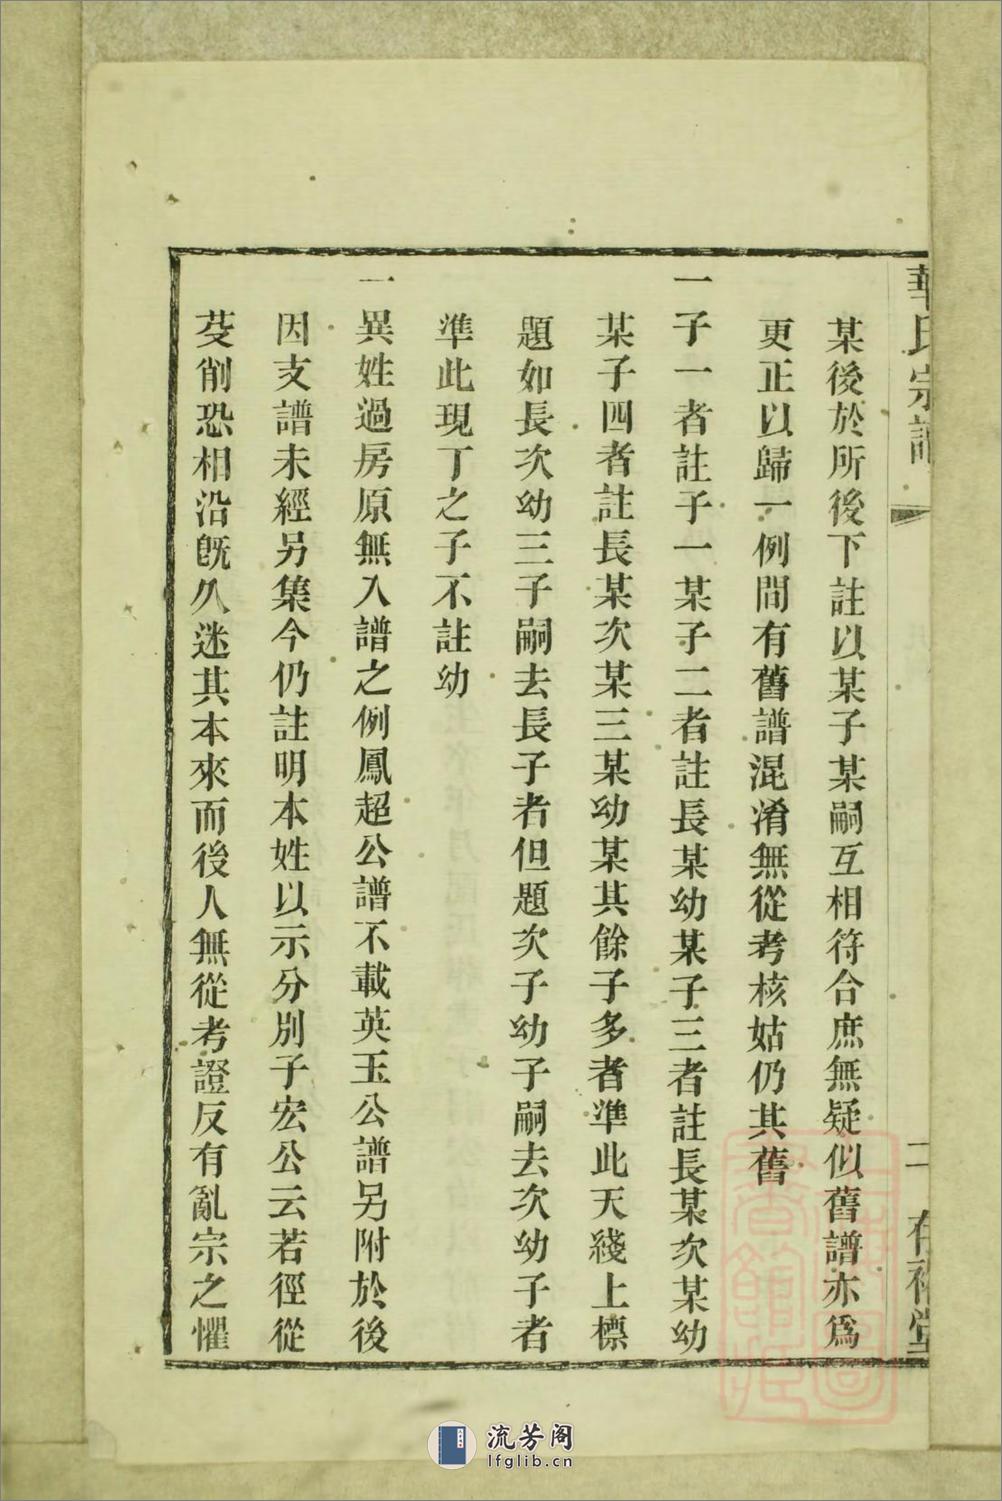 華氏宗譜
二
存裕堂
某後於所後下註以某子某嗣互相符合庶無疑似舊譜亦爲
更正以歸一例間有舊譜混淆無從考核姑仍其舊
一子一者註子一某子二者註長某幼某子三者註長某次某幼
某子四者註長某次某三某幼某其餘子多者準此天綫上標
題如長次幼三子嗣去長子者但題次子幼子嗣去次幼子者
準此現丁之子不註幼
一異姓過房原無入譜之例鳳超公譜不載英玉公譜另附於後
因支譜未經另集今仍註明本姓以示分別子宏公云若徑從
芟削恐相沿旣久迷其本來而後人無從考證反有亂宗之懼
流芳阁
lfglib.cn